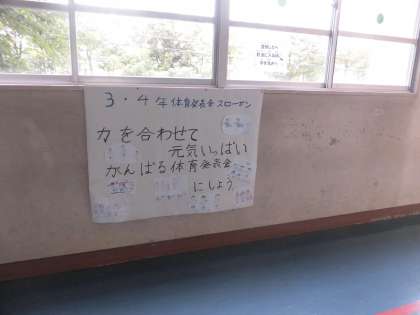 3・4年体育発表会スローガン
力を合わせて
元気いっぱい
がんばる体育発表会
にしよう